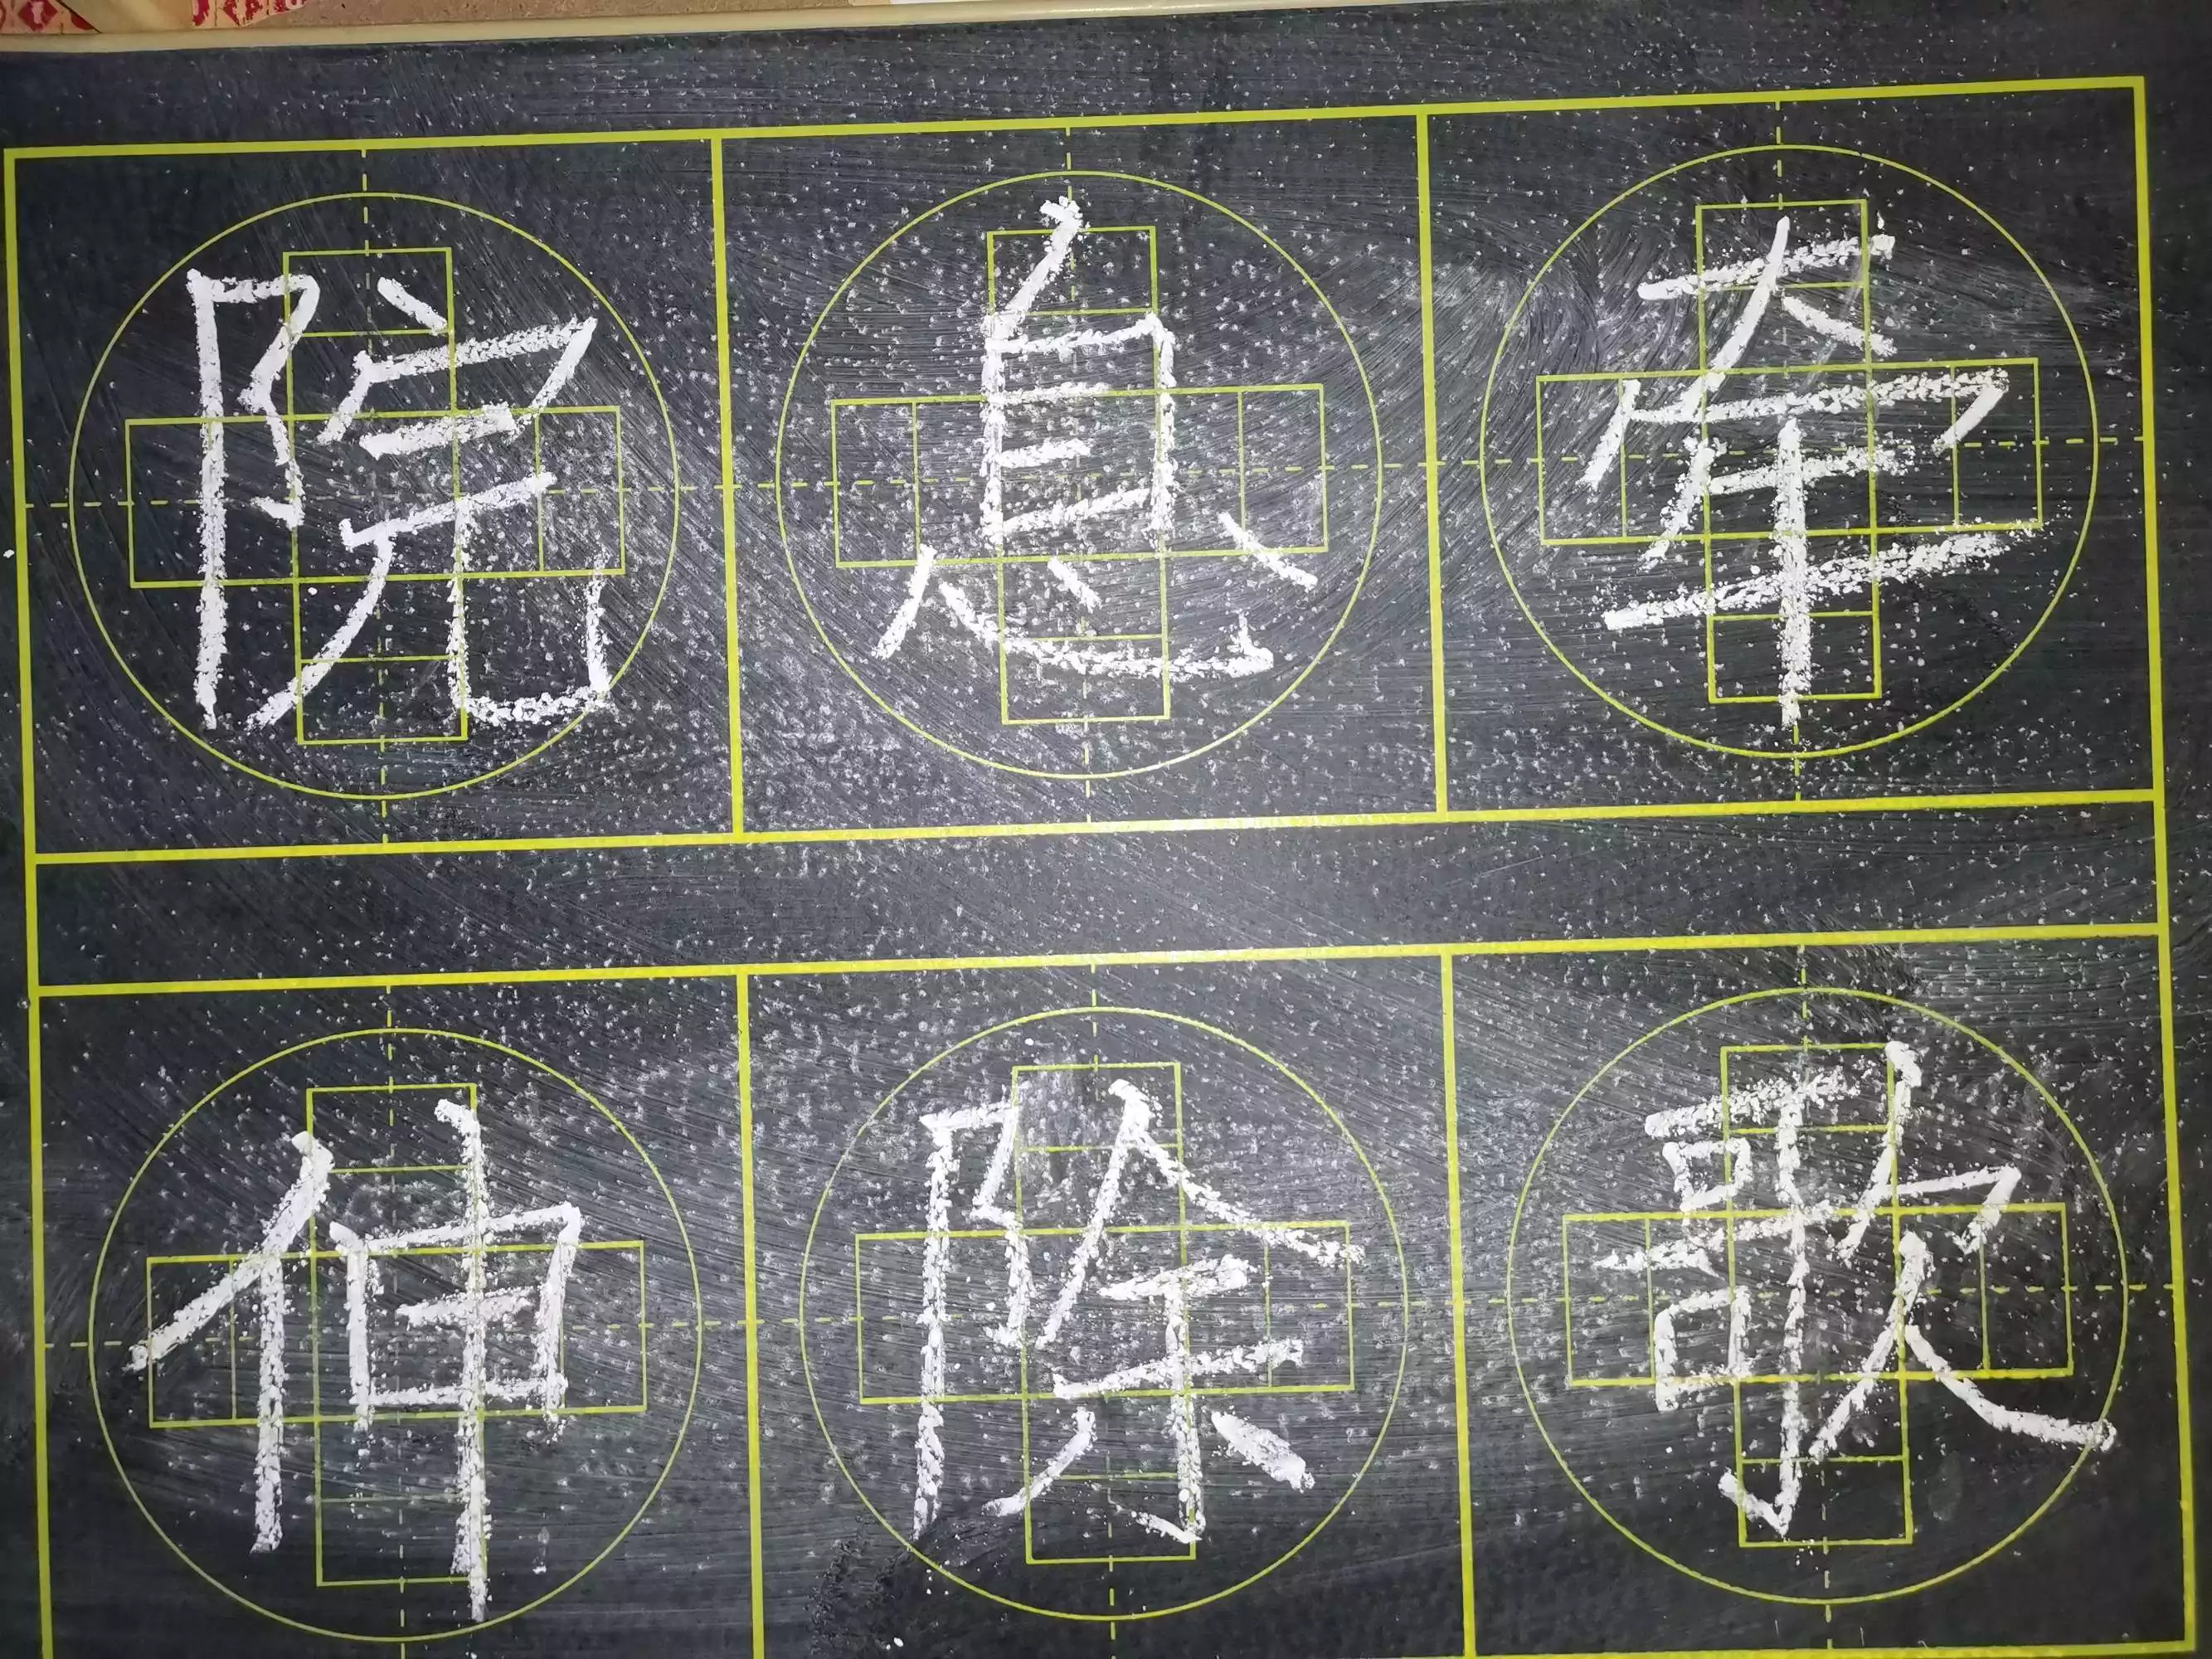 院息牵
伸除歌